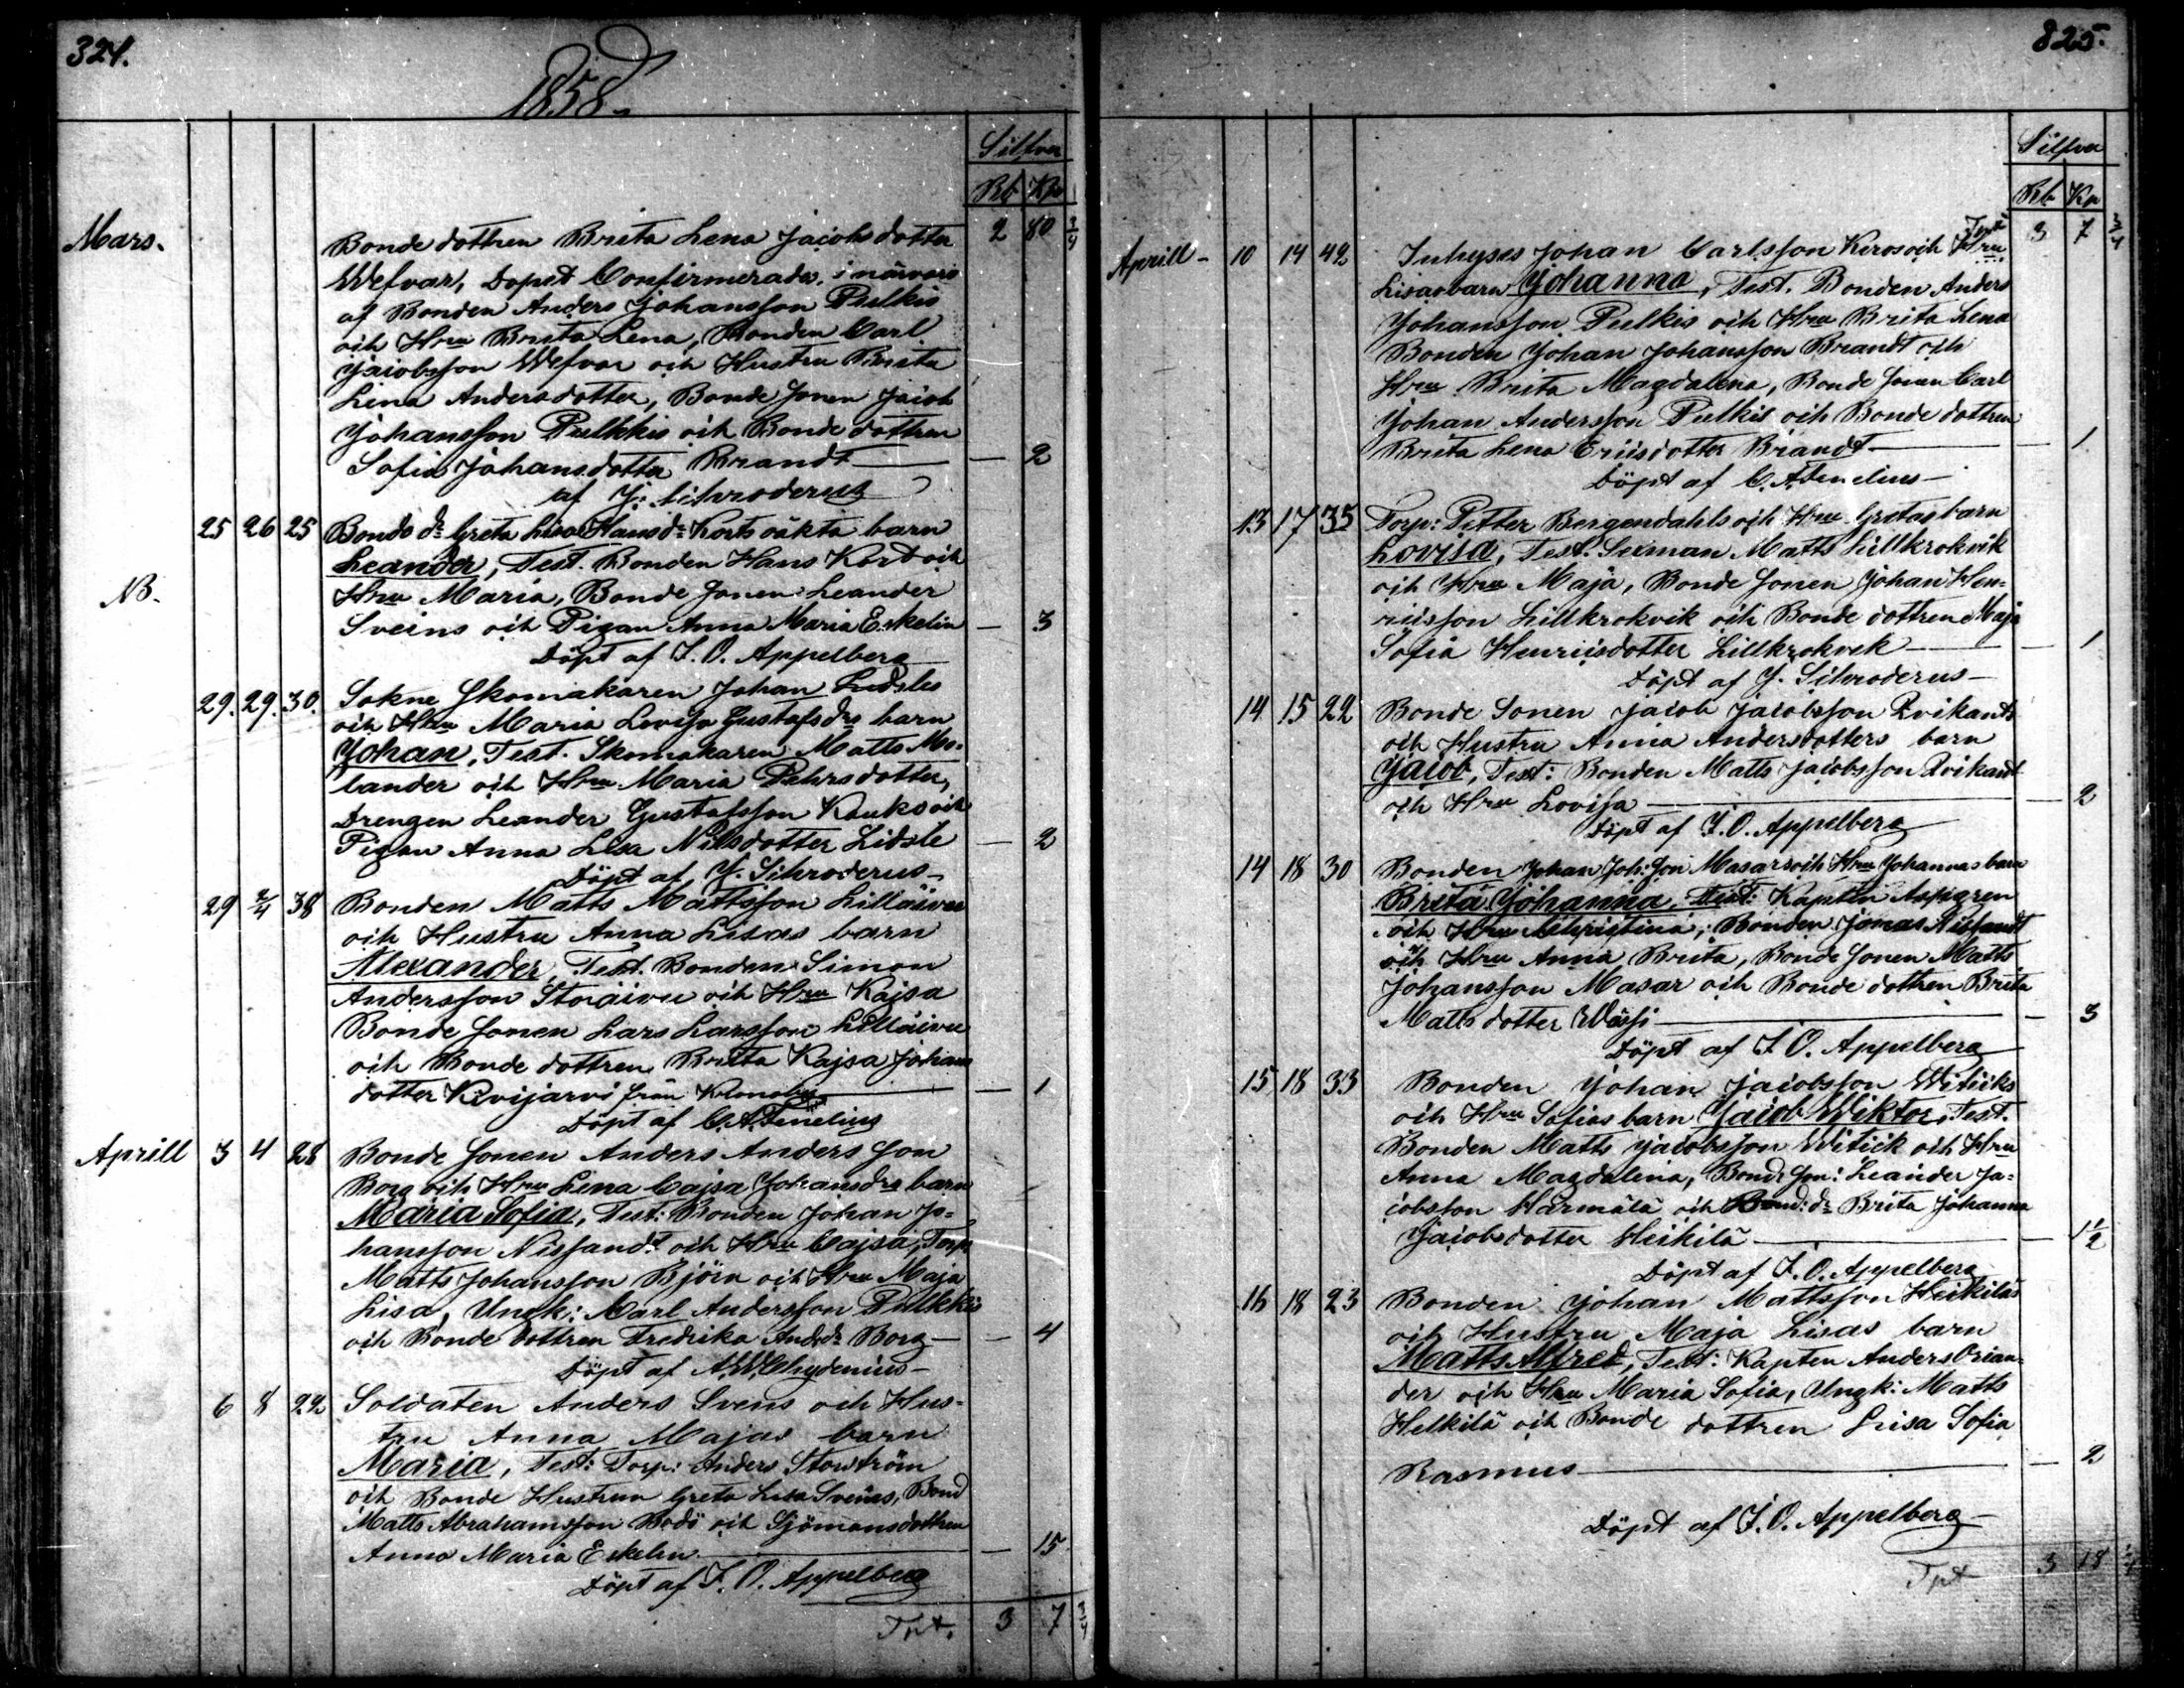 324.
1858
Silfver
Rb Kp
Mars. Bonde dottren Brita Lena Jacobsdotter 2 80 3/4
Wefvar, Dopet Confirmerades i närvaro
af Bonden Anders Johansson Pulkis
och Hru Brita Lena, Bonden Carl
Jacobsson Wefvar och Hustru Brita
Lena Andersdotter, Bonde Sonen Jacob
Johansson Pulkkis och Bonde dottren
Sofia Johansdotter Brandt — 2
af J. Schroderus
25 26 25 Bonde dr Greta Lisa Hansdr Korts oäkta barn
Leander, Test. Bonden Hans Kort och
NB. Hru Maria, Bonde Sonen Leander
Sveins och Pigan Anna Maria Eskelin — 3
Döpt af J. O. Appelberg
29. 29. 30. Sokne Skomakaren Johan Lidsles
och Hru Maria Lovisa Gustafsdrs barn
Johan, Test. Skomakaren Matts Mo-
lander och Hru Maria Pehrsdotter,
Drengen Leander Gustafsson Kauks och
Pigan Anna Lisa Nilsdotter Lidsle — 2
Döpt af J. Schroderus
29 2/4 38 Bonden Matts Mattsson Lilläivu
och Hustru Anna Lisas barn
Alexander, Test. Bonden Simon
Andersson Storäivu och Hru Kajsa
Bonde Sonen Lars Larsson Lilläivu
och Bonde dottren Britta Kajsa Johans
dotter Kivijarvi från Kronoby — 1
Döpt af C. A. Fenelius
Aprill 3 4 28 Bonde Sonen Anders Anders Son
Borg och Hru Lena Cajsa Johansdrs barn
Maria Sofia, Test: Bonden Johan Jo-
hansson Nissandt och Hru Cajsa, Torp.
Matts Johansson Björn och Hru Maja
Lisa, Ungk: Carl Andersson Pulkkis
och Bonde dottren Fredrika Andrdr Borg — 4
Döpt af A. W. Chydenius
6 8 22 Soldaten Anders Svens och Hus-
tru Anna Majas barn
Maria, Test: Torp: Anders Storström
och Bonde Hustrun Greta Lisa Sveins, Bond
Matts Abrahamsson Bodö och Sjömansdottren
Anna Maria Eskelin — 15
Döpt af J. O. Appelberg
Trt. 3 7 3/4
825.
Silfver
Rb Kp
Trpt 3 7 3/4
Aprill 10 14 42 Inhyses Johan Carlsson Keros och Hru
Lisas barn Johanna, Test. Bonden Anders
Johansson Pulkis och Hru Brita Lena
Bonden Johan Johansson Brandt och
Hru Brita Magdalena, Bonde Sonen Carl
Johan Andersson Pulkis och Bonde dottren
Brita Lena Ericsdotter Brandt — 1
Döpt af C. A. Fenelius
13 17 35 Torp: Petter Bergendahls och Hru Gretas barn
Lovisa, Test. Sexman Matts Lillkrokvik
och Hru Maja, Bonde Sonen Johan Hen-
ricsson Lillkrokvik och Bonde dottren Maja
Sofia Henricsdotter Lillkrokvek — 1
Döpt af J. Schroderus
14 15 22 Bonde Sonen Jacob Jacobsson Qvikants
och Hustru Anna Andersdotters barn
Jacob, Test: Bonden Matts Jacobsson Qvikant
och Hru Lovisa — 2
Döpt af J. O. Appelberg
14 18 30 Bonden Johan Joh:Son Masars och Hru Johannas barn
Brita Johanna, Test: Kapten Aspgren
och Hru Christina, Bonden Jonas Nissandt
och Hru Anna Brita, Bonde Sonen Matts
Johansson Masar och Bonde dottren Brita
Matts dotter Wassi — 3
Döpt af J. O. Appelberg
15 18 33 Bonden Johan Jacobsson Witicks
och Hru Sofias barn Jacob Wiktor, Test.
Bonden Matts Jacobsson Witick och Hru
Anna Magdalena, Bonde Son: Leander Ja-
cobsson Härmälä och Bond: dr Brita Johanna
Jacobsdotter Heikilä — 1 1/2
Döpt af J. O. Appelberg
16 18 23 Bonden Johan Mattsson Heikiläs
och Hustru Maja Lisas barn
Matts Alfred, Test: Kapten Anders Orian-
der och Hru Maria Sofia, Ungk: Matts
Helkilä och Bonde dottren Lisa Sofia
Rasmus — 2
Döpt af J. O. Appelberg
Trpt 3 18 1/4